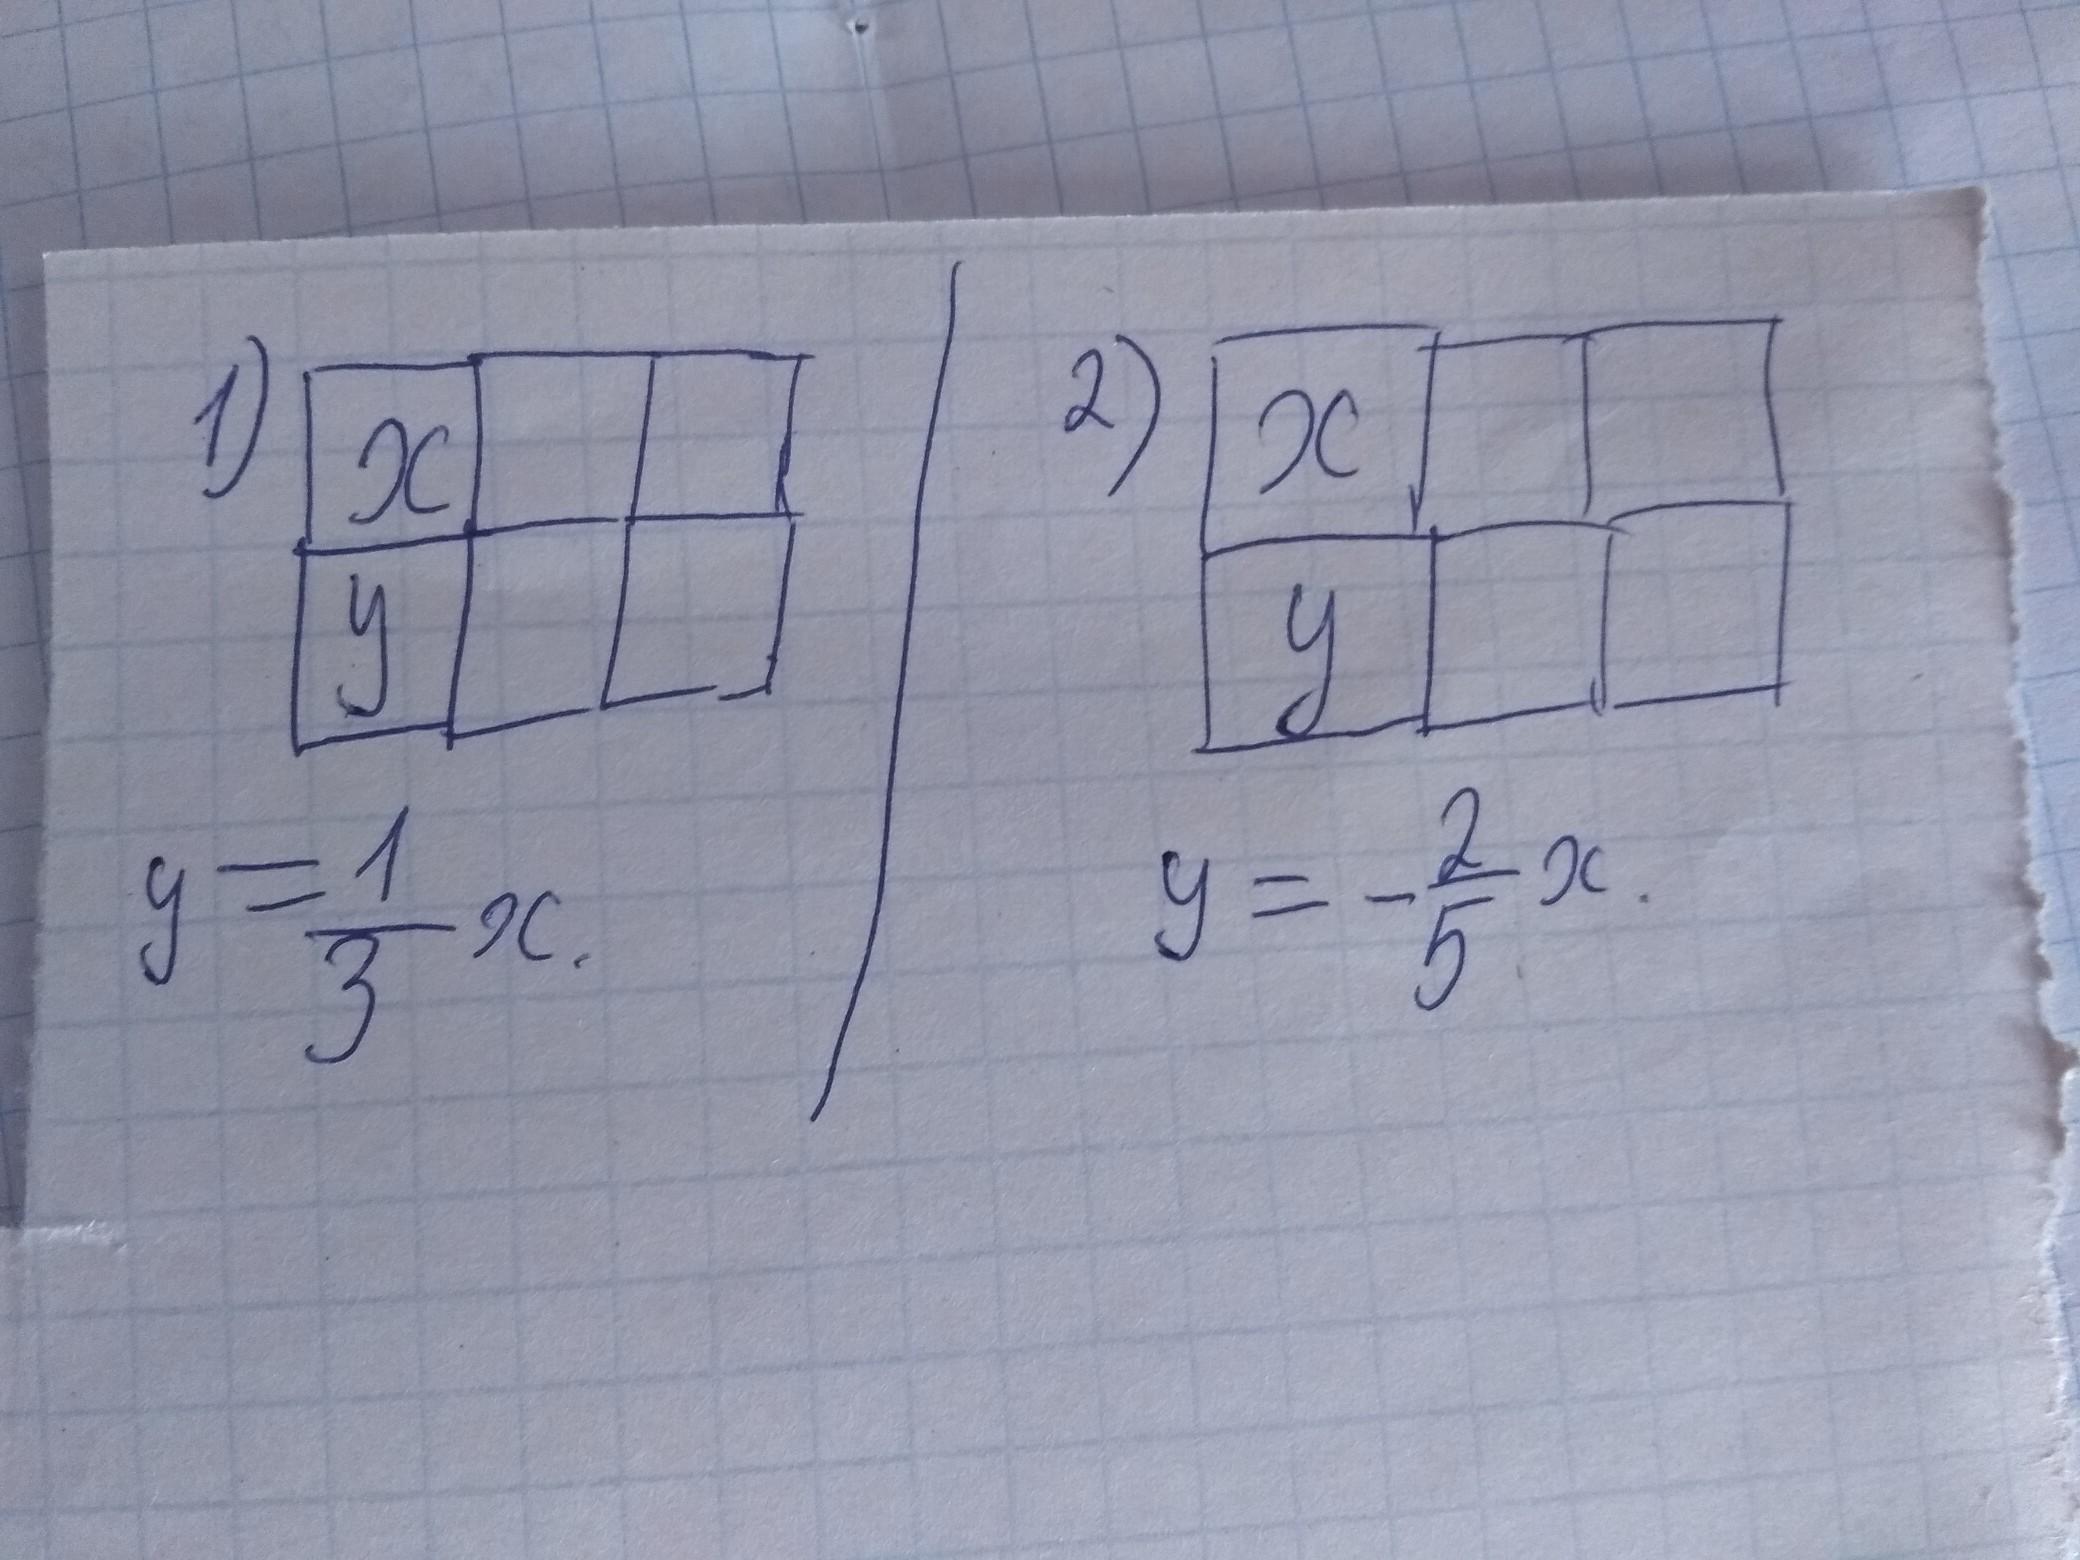 1) x
y
y = 1/3 x.
2) x
y
y = - 2/5 x.